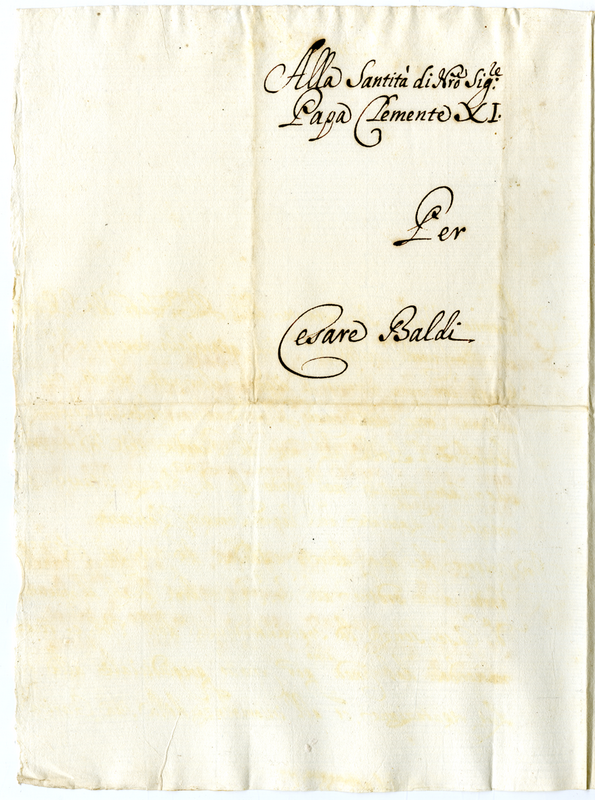 Alla Santità di Nro Sig.le
Papa Clemente XI.
Per
Cesare Baldi.